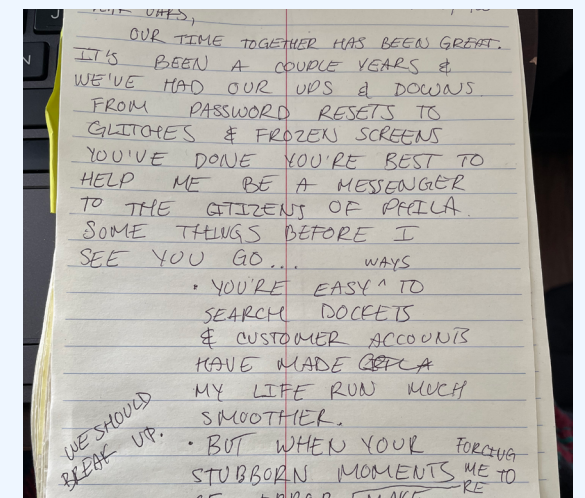 OUR TIME TOGETHER HAS BEEN GREAT.
IT'S BEEN A COUPLE YEARS &
WE'VE HAD OUR UPS & DOWNS.
FROM PASSWORD RESETS TO
GLITCHES & FROZEN SCREENS
YOU'VE DONE YOU'RE BEST TO
HELP ME BE A MESSENGER
TO THE CITIZENS OF PHILA.
SOME THINGS BEFORE I
SEE YOU GO...
WAYS
• YOU'RE EASY ^ TO
SEARCH DOCKETS
& CUSTOMER ACCOUNTS
HAVE MADE
MY LIFE RUN MUCH
SMOOTHER.
WE SHOULD
BREAK UP.
• BUT WHEN YOUR FORCING
STUBBORN MOMENTS ME TO
RE